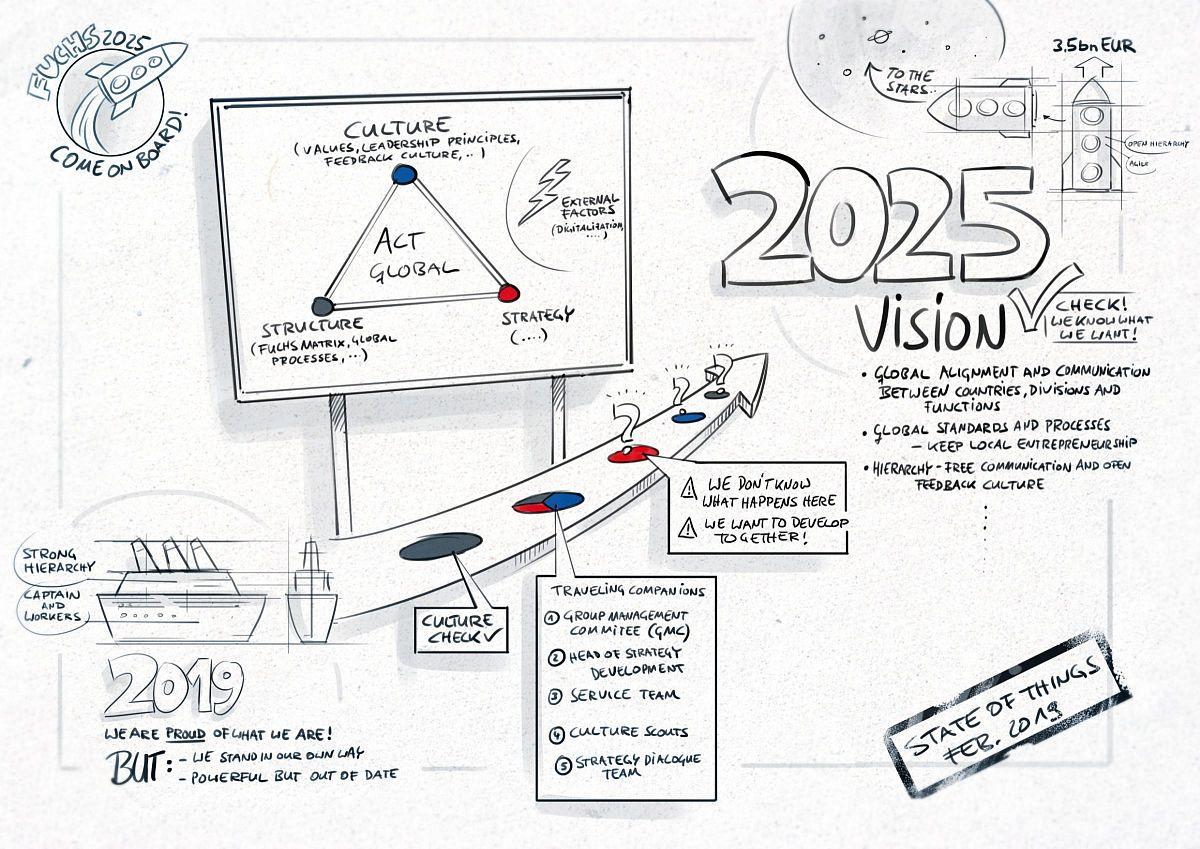 FUCHS 2025
COME ON BOARD!
CULTURE
(VALUES, LEADERSHIP PRINCIPLES,
FEEDBACK CULTURE,..)
ACT
GLOBAL
EXTERNAL
FACTORS
(DIGITALIZATION,
....)
STRUCTURE
(FUCHS MATRIX, GLOBAL
PROCESSES, ...)
STRATEGY
(....)
TO THE
STARS..
3.5bn EUR
OPEN HIERARCHY
AGILE
2025
VISION
CHECK!
WE KNOW WHAT
WE WANT!
• GLOBAL ALIGNMENT AND COMMUNICATION
BETWEEN COUNTRIES, DIVISIONS AND
FUNCTIONS
• GLOBAL STANDARDS AND PROCESSES
– KEEP LOCAL ENTREPRENEURSHIP
• HIERARCHY-FREE COMMUNICATION AND OPEN
FEEDBACK CULTURE
?
?
?
WE DON'T KNOW
WHAT HAPPENS HERE
WE WANT TO DEVELOP
TOGETHER!
STRONG
HIERARCHY
CAPTAIN
AND
WORKERS
CULTURE
CHECK ✓
TRAVELING COMPANIONS
1 GROUP MANAGEMENT
COMMITEE (GMC)
2 HEAD OF STRATEGY
DEVELOPMENT
3 SERVICE TEAM
4 CULTURE SCOUTS
5 STRATEGY DIALOGUE
TEAM
2019
WE ARE PROUD OF WHAT WE ARE!
BUT: - WE STAND IN OUR OWN WAY
- POWERFUL BUT OUT OF DATE
STATE OF THINGS
FEB. 2019